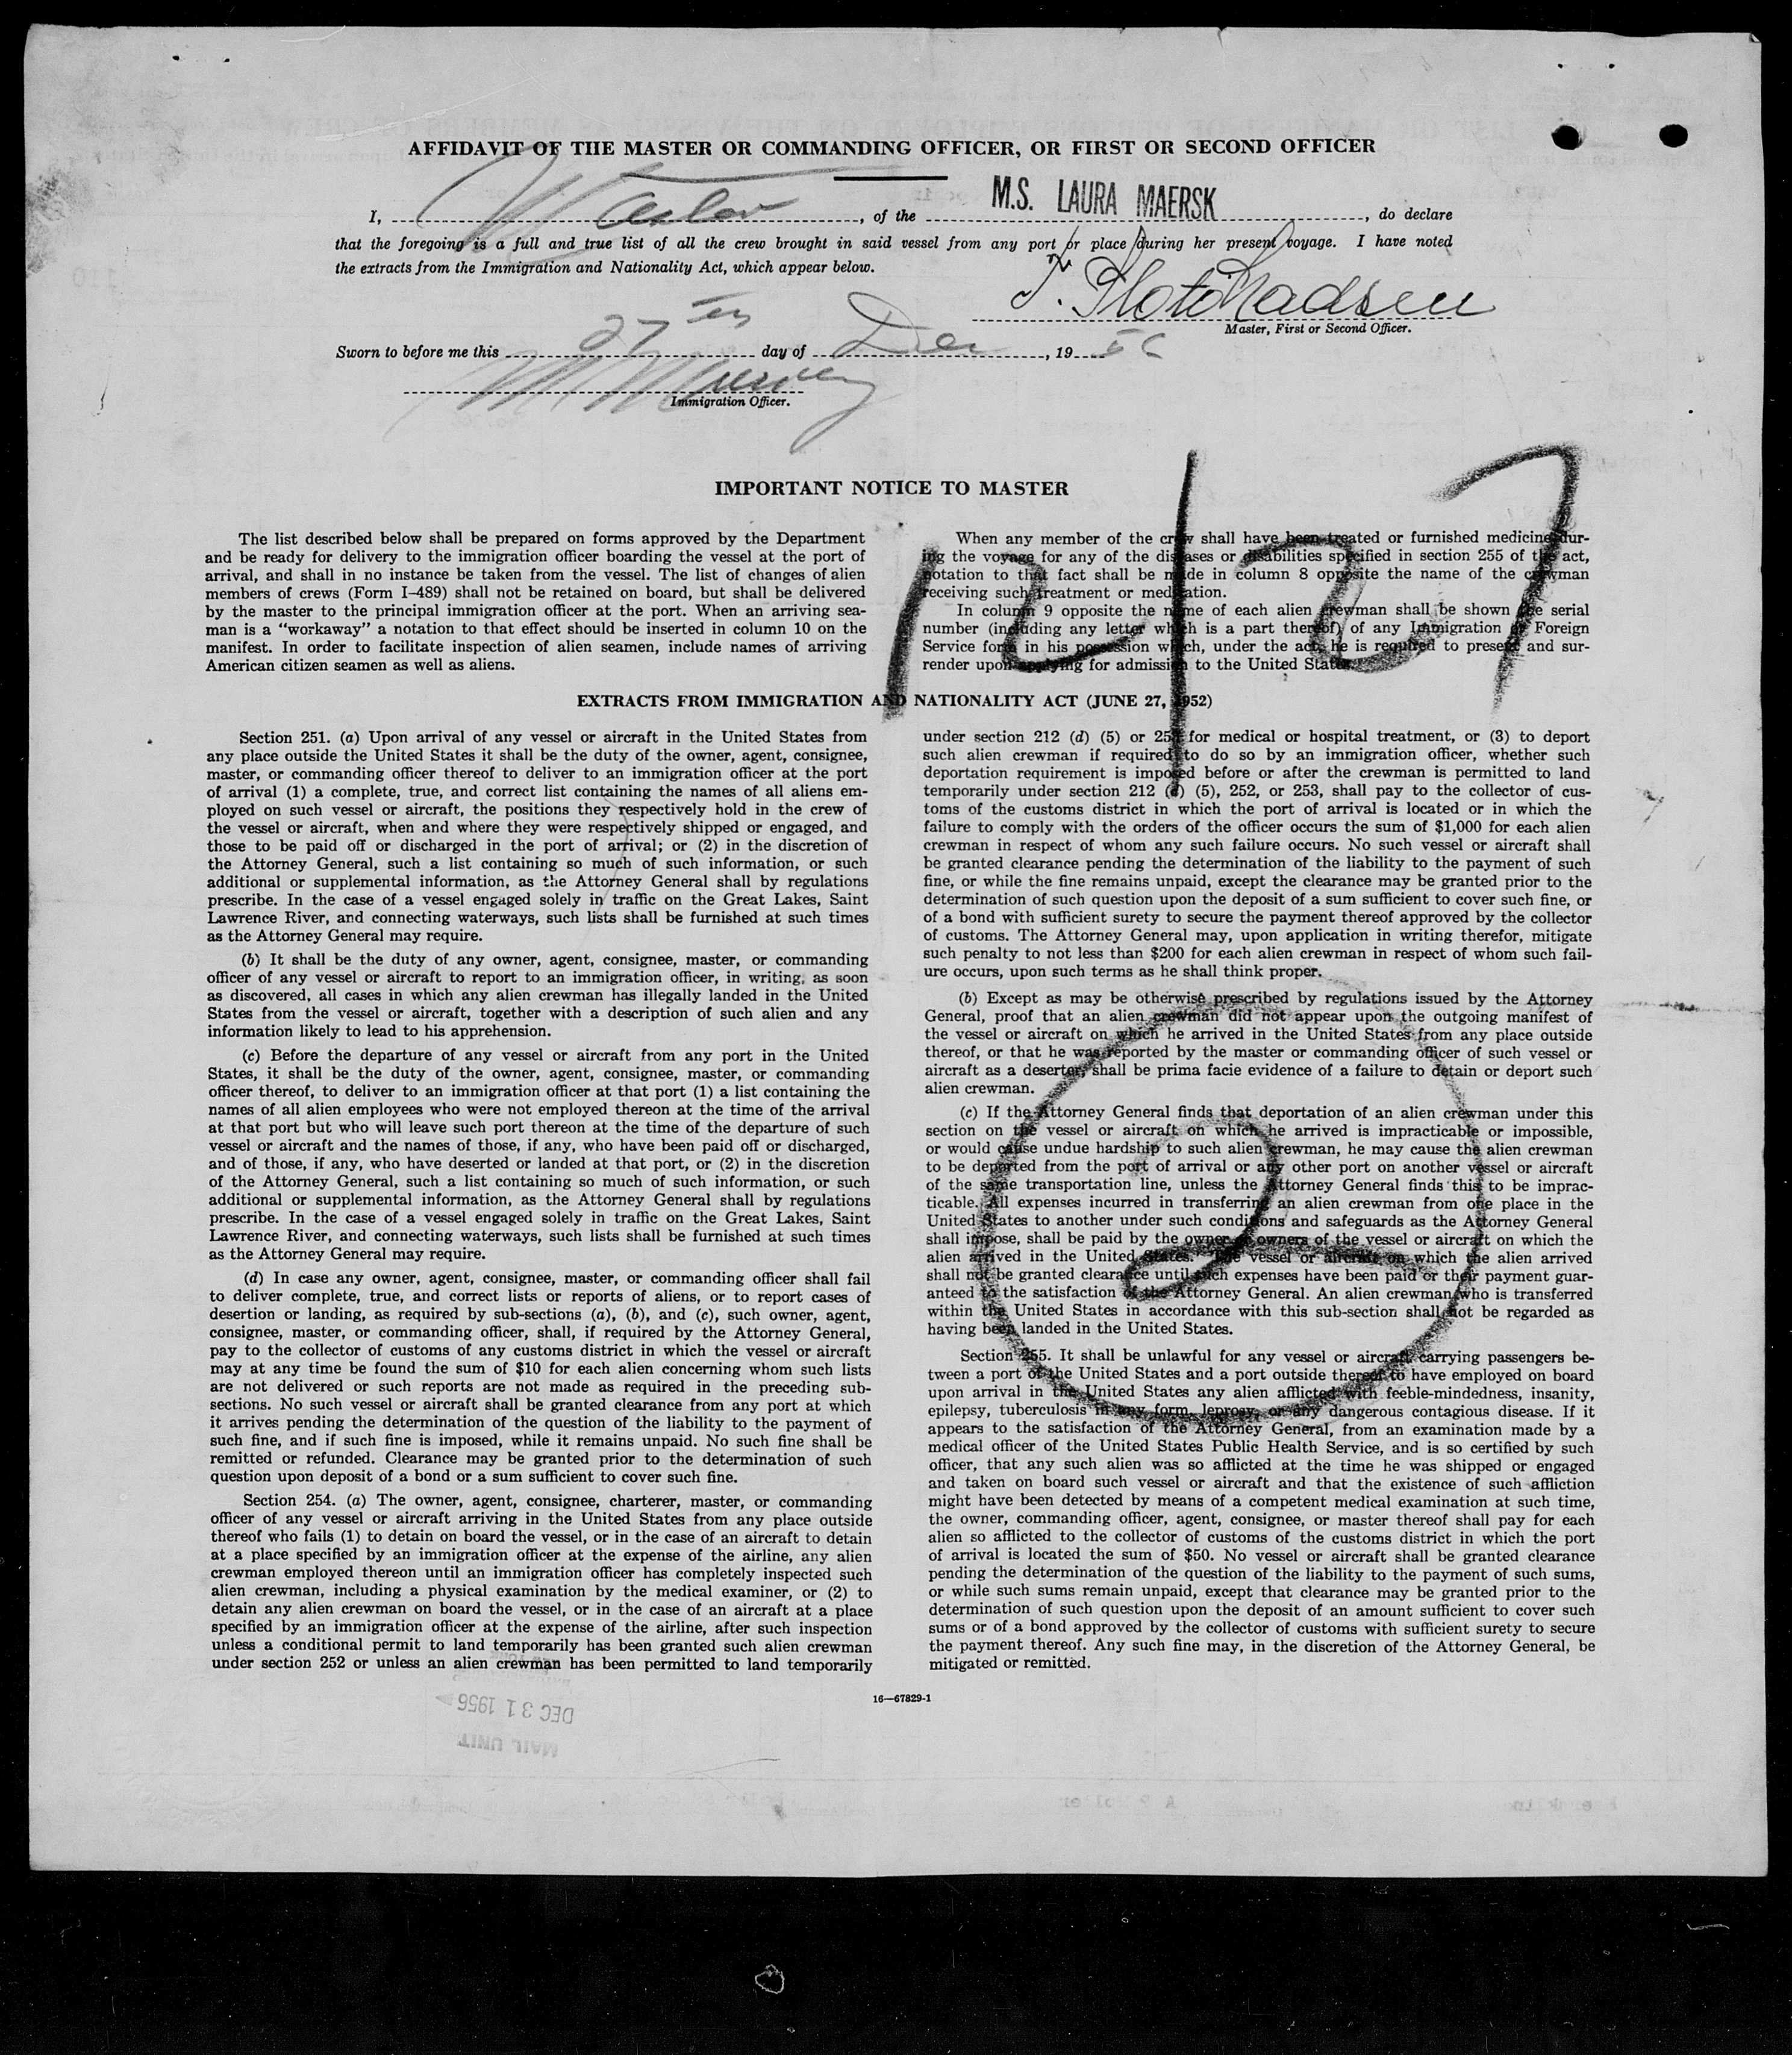 AFFIDAVIT OF THE MASTER OR COMMANDING OFFICER, OR FIRST OR SECOND OFFICER
I, Master, of the M.S. LAURA MAERSK, do declare
that the foregoing is a full and true list of all the crew brought in said vessel from any port or place during her present voyage. I have noted
the extracts from the Immigration and Nationality Act, which appear below.
Madsen
Master, First or Second Officer.
Sworn to before me this 27th day of Dec, 1956
Immigration Officer.
12/27
IMPORTANT NOTICE TO MASTER
The list described below shall be prepared on forms approved by the Department
and be ready for delivery to the immigration officer boarding the vessel at the port of
arrival, and shall in no instance be taken from the vessel. The list of changes of alien
members of crews (Form I–489) shall not be retained on board, but shall be delivered
by the master to the principal immigration officer at the port. When an arriving sea-
man is a “workaway” a notation to that effect should be inserted in column 10 on the
manifest. In order to facilitate inspection of alien seamen, include names of arriving
American citizen seamen as well as aliens.
When any member of the crew shall have been treated or furnished medicine dur-
ing the voyage for any of the diseases or disabilities specified in section 255 of the act,
notation to that fact shall be made in column 8 opposite the name of the crewman
receiving such treatment or medication.
In column 9 opposite the name of each alien crewman shall be shown the serial
number (including any letter which is a part thereof) of any Immigration or Foreign
Service form in his possession which, under the act, he is required to present and sur-
render upon applying for admission to the United States.
EXTRACTS FROM IMMIGRATION AND NATIONALITY ACT (JUNE 27, 1952)
Section 251. (a) Upon arrival of any vessel or aircraft in the United States from
any place outside the United States it shall be the duty of the owner, agent, consignee,
master, or commanding officer thereof to deliver to an immigration officer at the port
of arrival (1) a complete, true, and correct list containing the names of all aliens em-
ployed on such vessel or aircraft, the positions they respectively hold in the crew of
the vessel or aircraft, when and where they were respectively shipped or engaged, and
those to be paid off or discharged in the port of arrival; or (2) in the discretion of
the Attorney General, such a list containing so much of such information, or such
additional or supplemental information, as the Attorney General shall by regulations
prescribe. In the case of a vessel engaged solely in traffic on the Great Lakes, Saint
Lawrence River, and connecting waterways, such lists shall be furnished at such times
as the Attorney General may require.
(b) It shall be the duty of any owner, agent, consignee, master, or commanding
officer of any vessel or aircraft to report to an immigration officer, in writing, as soon
as discovered, all cases in which any alien crewman has illegally landed in the United
States from the vessel or aircraft, together with a description of such alien and any
information likely to lead to his apprehension.
(c) Before the departure of any vessel or aircraft from any port in the United
States, it shall be the duty of the owner, agent, consignee, master, or commanding
officer thereof, to deliver to an immigration officer at that port (1) a list containing the
names of all alien employees who were not employed thereon at the time of the arrival
at that port but who will leave such port thereon at the time of the departure of such
vessel or aircraft and the names of those, if any, who have been paid off or discharged,
and of those, if any, who have deserted or landed at that port, or (2) in the discretion
of the Attorney General, such a list containing so much of such information, or such
additional or supplemental information, as the Attorney General shall by regulations
prescribe. In the case of a vessel engaged solely in traffic on the Great Lakes, Saint
Lawrence River, and connecting waterways, such lists shall be furnished at such times
as the Attorney General may require.
(d) In case any owner, agent, consignee, master, or commanding officer shall fail
to deliver complete, true, and correct lists or reports of aliens, or to report cases of
desertion or landing, as required by sub-sections (a), (b), and (c), such owner, agent,
consignee, master, or commanding officer, shall, if required by the Attorney General,
pay to the collector of customs of any customs district in which the vessel or aircraft
may at any time be found the sum of $10 for each alien concerning whom such lists
are not delivered or such reports are not made as required in the preceding sub-
sections. No such vessel or aircraft shall be granted clearance from any port at which
it arrives pending the determination of the question of the liability to the payment of
such fine, and if such fine is imposed, while it remains unpaid. No such fine shall be
remitted or refunded. Clearance may be granted prior to the determination of such
question upon deposit of a bond or a sum sufficient to cover such fine.
Section 254. (a) The owner, agent, consignee, charterer, master, or commanding
officer of any vessel or aircraft arriving in the United States from any place outside
thereof who fails (1) to detain on board the vessel, or in the case of an aircraft to detain
at a place specified by an immigration officer at the expense of the airline, any alien
crewman employed thereon until an immigration officer has completely inspected such
alien crewman, including a physical examination by the medical examiner, or (2) to
detain any alien crewman on board the vessel, or in the case of an aircraft at a place
specified by an immigration officer at the expense of the airline, after such inspection
unless a conditional permit to land temporarily has been granted such alien crewman
under section 252 or unless an alien crewman has been permitted to land temporarily
under section 212 (d) (5) or 253 for medical or hospital treatment, or (3) to deport
such alien crewman if required to do so by an immigration officer, whether such
deportation requirement is imposed before or after the crewman is permitted to land
temporarily under section 212 (d) (5), 252, or 253, shall pay to the collector of cus-
toms of the customs district in which the port of arrival is located or in which the
failure to comply with the orders of the officer occurs the sum of $1,000 for each alien
crewman in respect of whom any such failure occurs. No such vessel or aircraft shall
be granted clearance pending the determination of the liability to the payment of such
fine, or while the fine remains unpaid, except the clearance may be granted prior to the
determination of such question upon the deposit of a sum sufficient to cover such fine, or
of a bond with sufficient surety to secure the payment thereof approved by the collector
of customs. The Attorney General may, upon application in writing therefor, mitigate
such penalty to not less than $200 for each alien crewman in respect of whom such fail-
ure occurs, upon such terms as he shall think proper.
(b) Except as may be otherwise prescribed by regulations issued by the Attorney
General, proof that an alien crewman did not appear upon the outgoing manifest of
the vessel or aircraft on which he arrived in the United States from any place outside
thereof, or that he was reported by the master or commanding officer of such vessel or
aircraft as a deserter, shall be prima facie evidence of a failure to detain or deport such
alien crewman.
(c) If the Attorney General finds that deportation of an alien crewman under this
section on the vessel or aircraft on which he arrived is impracticable or impossible,
or would cause undue hardship to such alien crewman, he may cause the alien crewman
to be deported from the port of arrival or any other port on another vessel or aircraft
of the same transportation line, unless the Attorney General finds this to be imprac-
ticable. All expenses incurred in transferring an alien crewman from one place in the
United States to another under such conditions and safeguards as the Attorney General
shall impose, shall be paid by the owner or owners of the vessel or aircraft on which the
alien arrived in the United States. The vessel or aircraft on which the alien arrived
shall not be granted clearance until such expenses have been paid or their payment guar-
anteed to the satisfaction of the Attorney General. An alien crewman who is transferred
within the United States in accordance with this sub-section shall not be regarded as
having been landed in the United States.
2
Section 255. It shall be unlawful for any vessel or aircraft carrying passengers be-
tween a port of the United States and a port outside thereof to have employed on board
upon arrival in the United States any alien afflicted with feeble-mindedness, insanity,
epilepsy, tuberculosis in any form, leprosy, or any dangerous contagious disease. If it
appears to the satisfaction of the Attorney General, from an examination made by a
medical officer of the United States Public Health Service, and is so certified by such
officer, that any such alien was so afflicted at the time he was shipped or engaged
and taken on board such vessel or aircraft and that the existence of such affliction
might have been detected by means of a competent medical examination at such time,
the owner, commanding officer, agent, consignee, or master thereof shall pay for each
alien so afflicted to the collector of customs of the customs district in which the port
of arrival is located the sum of $50. No vessel or aircraft shall be granted clearance
pending the determination of the question of the liability to the payment of such sums,
or while such sums remain unpaid, except that clearance may be granted prior to the
determination of such question upon the deposit of an amount sufficient to cover such
sums or of a bond approved by the collector of customs with sufficient surety to secure
the payment thereof. Any such fine may, in the discretion of the Attorney General, be
mitigated or remitted.
16—67829-1
DEC 31 1956
MAIL UNIT